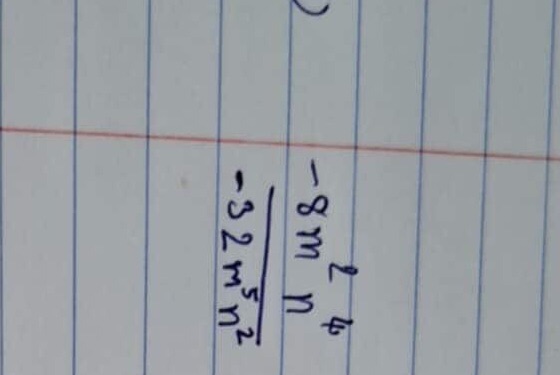 )
-8m²n⁴
-32m⁵n²